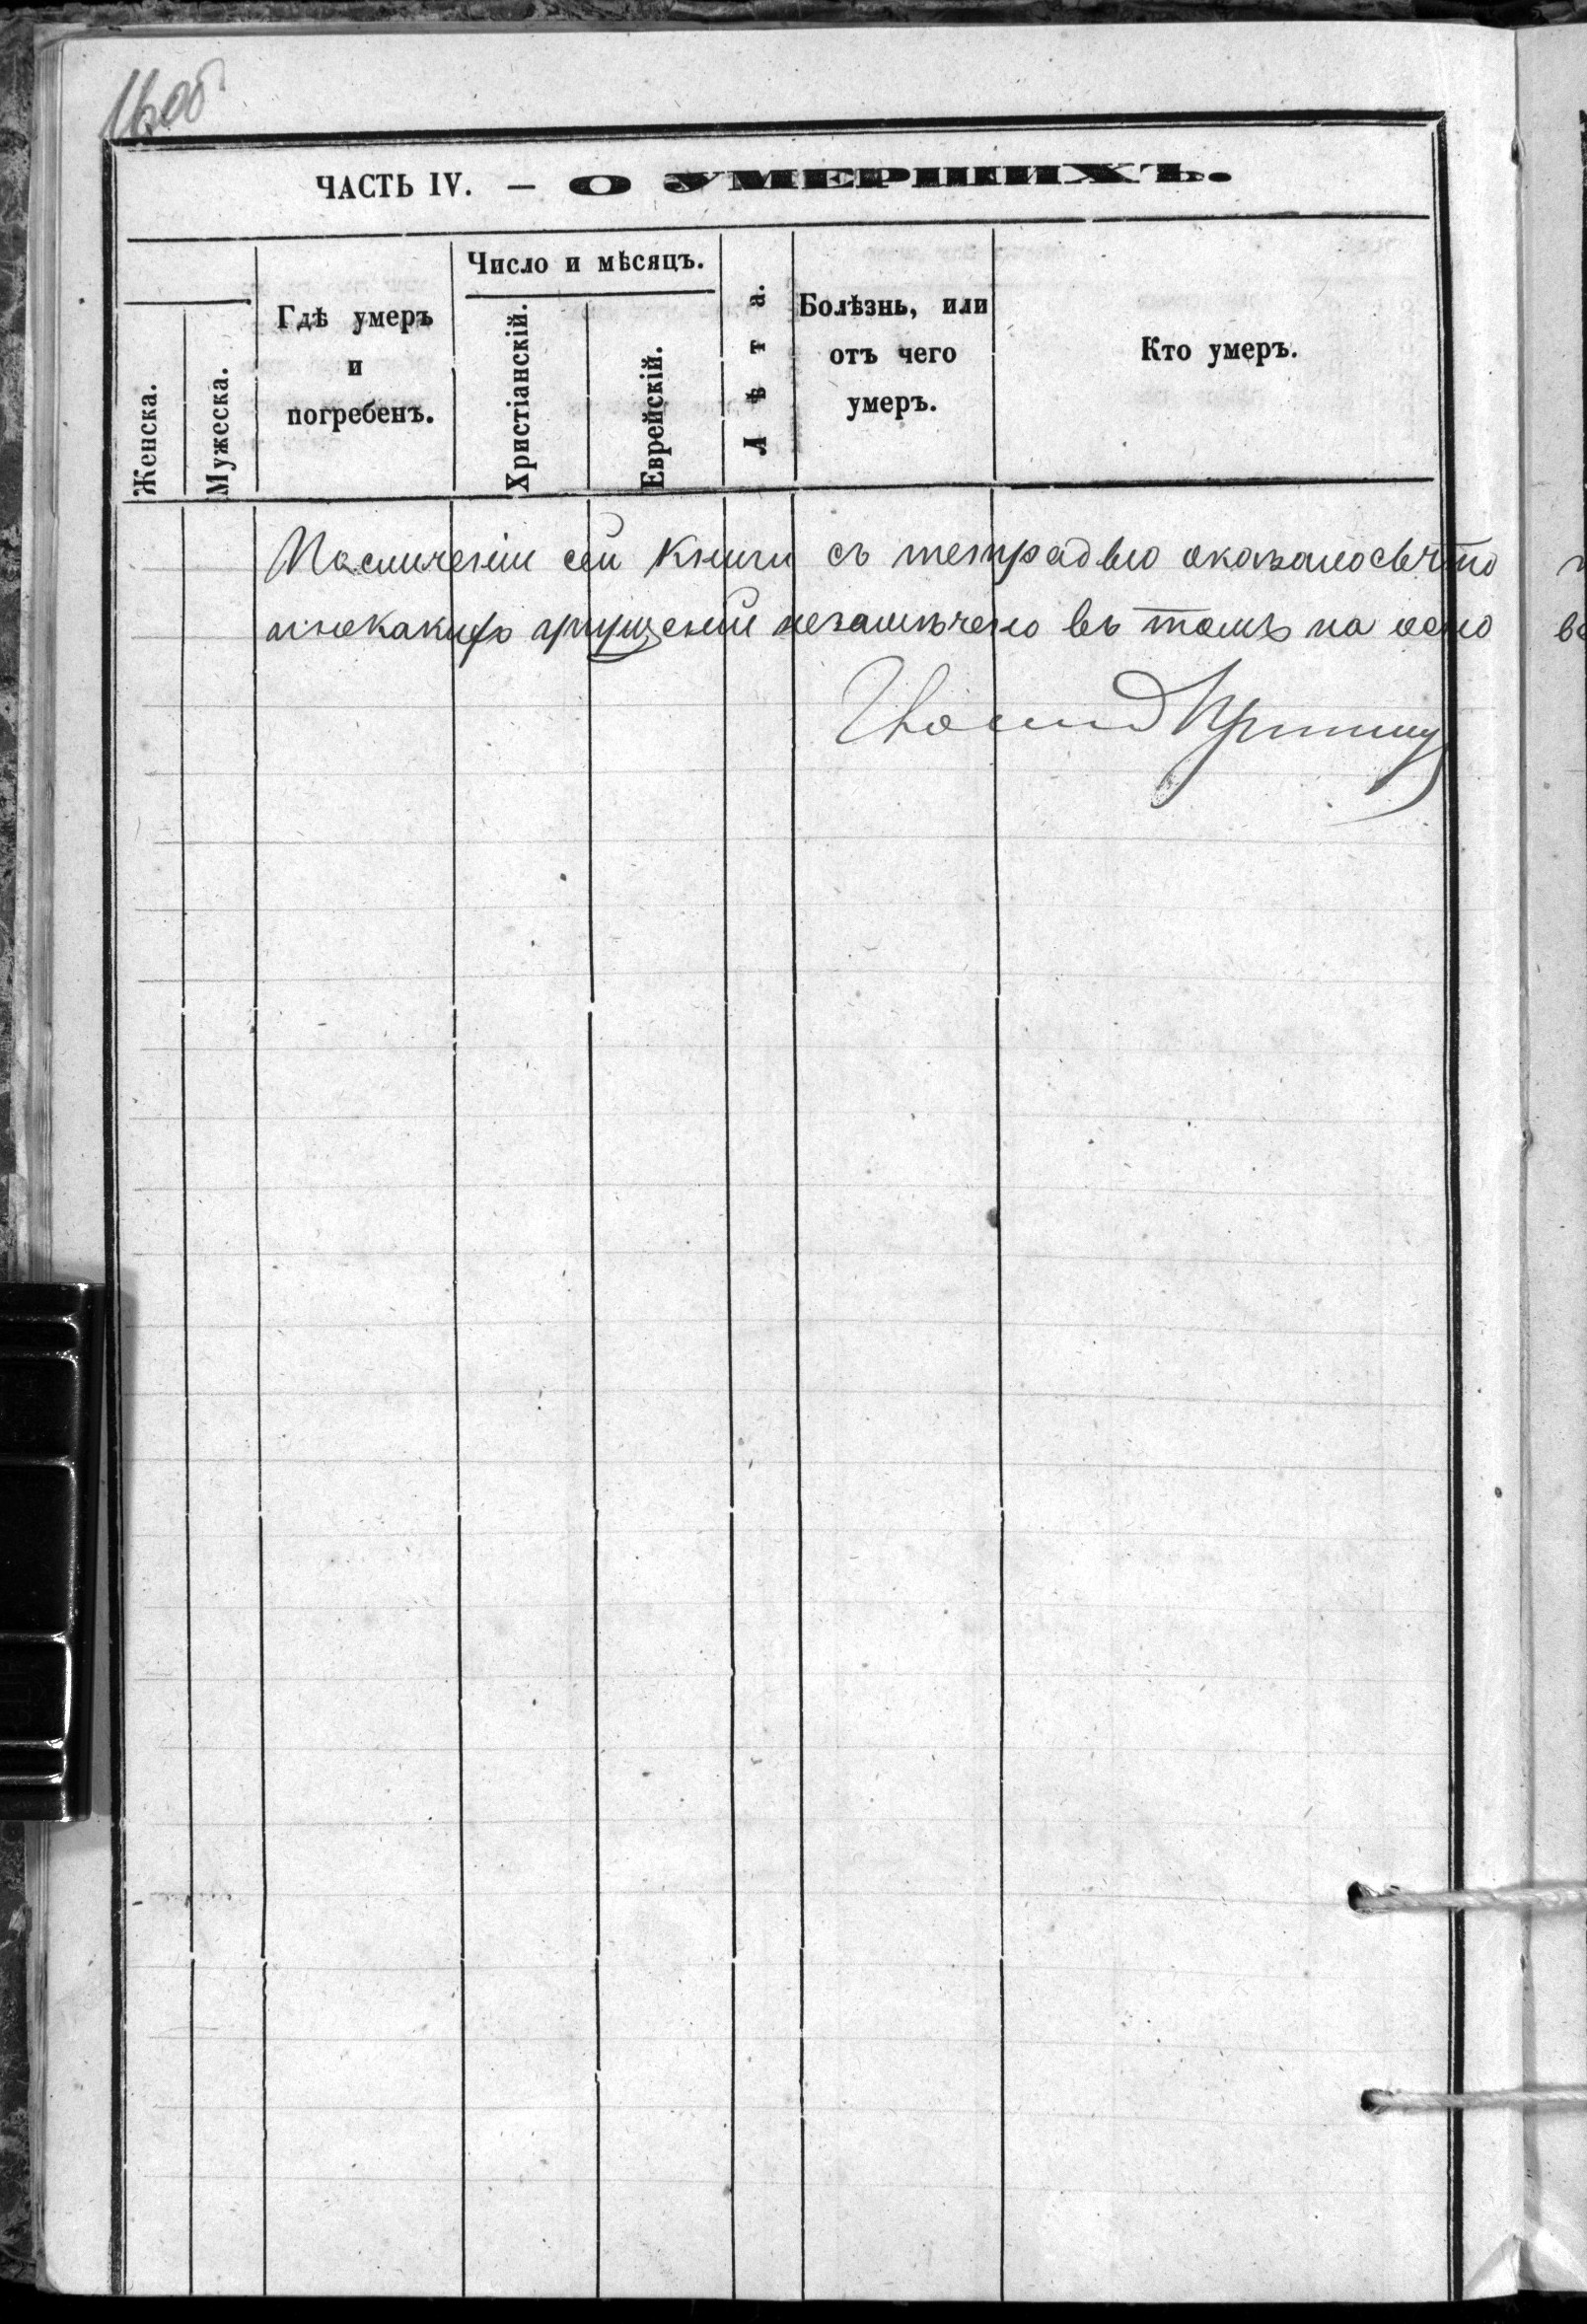 16об
ЧАСТЬ IV. — О УМЕРШИХЪ.
Женска.
Мужеска.
Гдѣ умеръ
и
погребенъ.
Число и мѣсяцъ.
Христіанскій.
Еврейскій.
Лѣта.
Болѣзнь, или
отъ чего
умеръ.
Кто умеръ.
По сличеніи сей книги съ тетрадью оказалось что
никакихъ упущеній незамѣчено въ томъ на осно